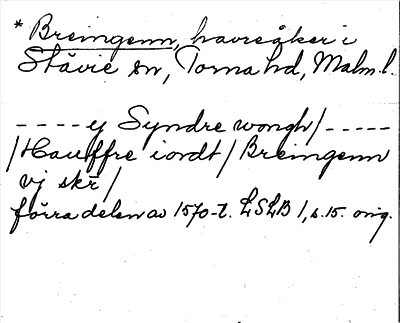 * Breingenn, havreåker i
Stävie sn, Torna hd, Malm. l.
- - - - y Syndre wongh / - - - - -
/ Hauffre iordt / Breingenn
vj skr /
förra delen av 1570-t. LSLB 1, s. 15. orig.